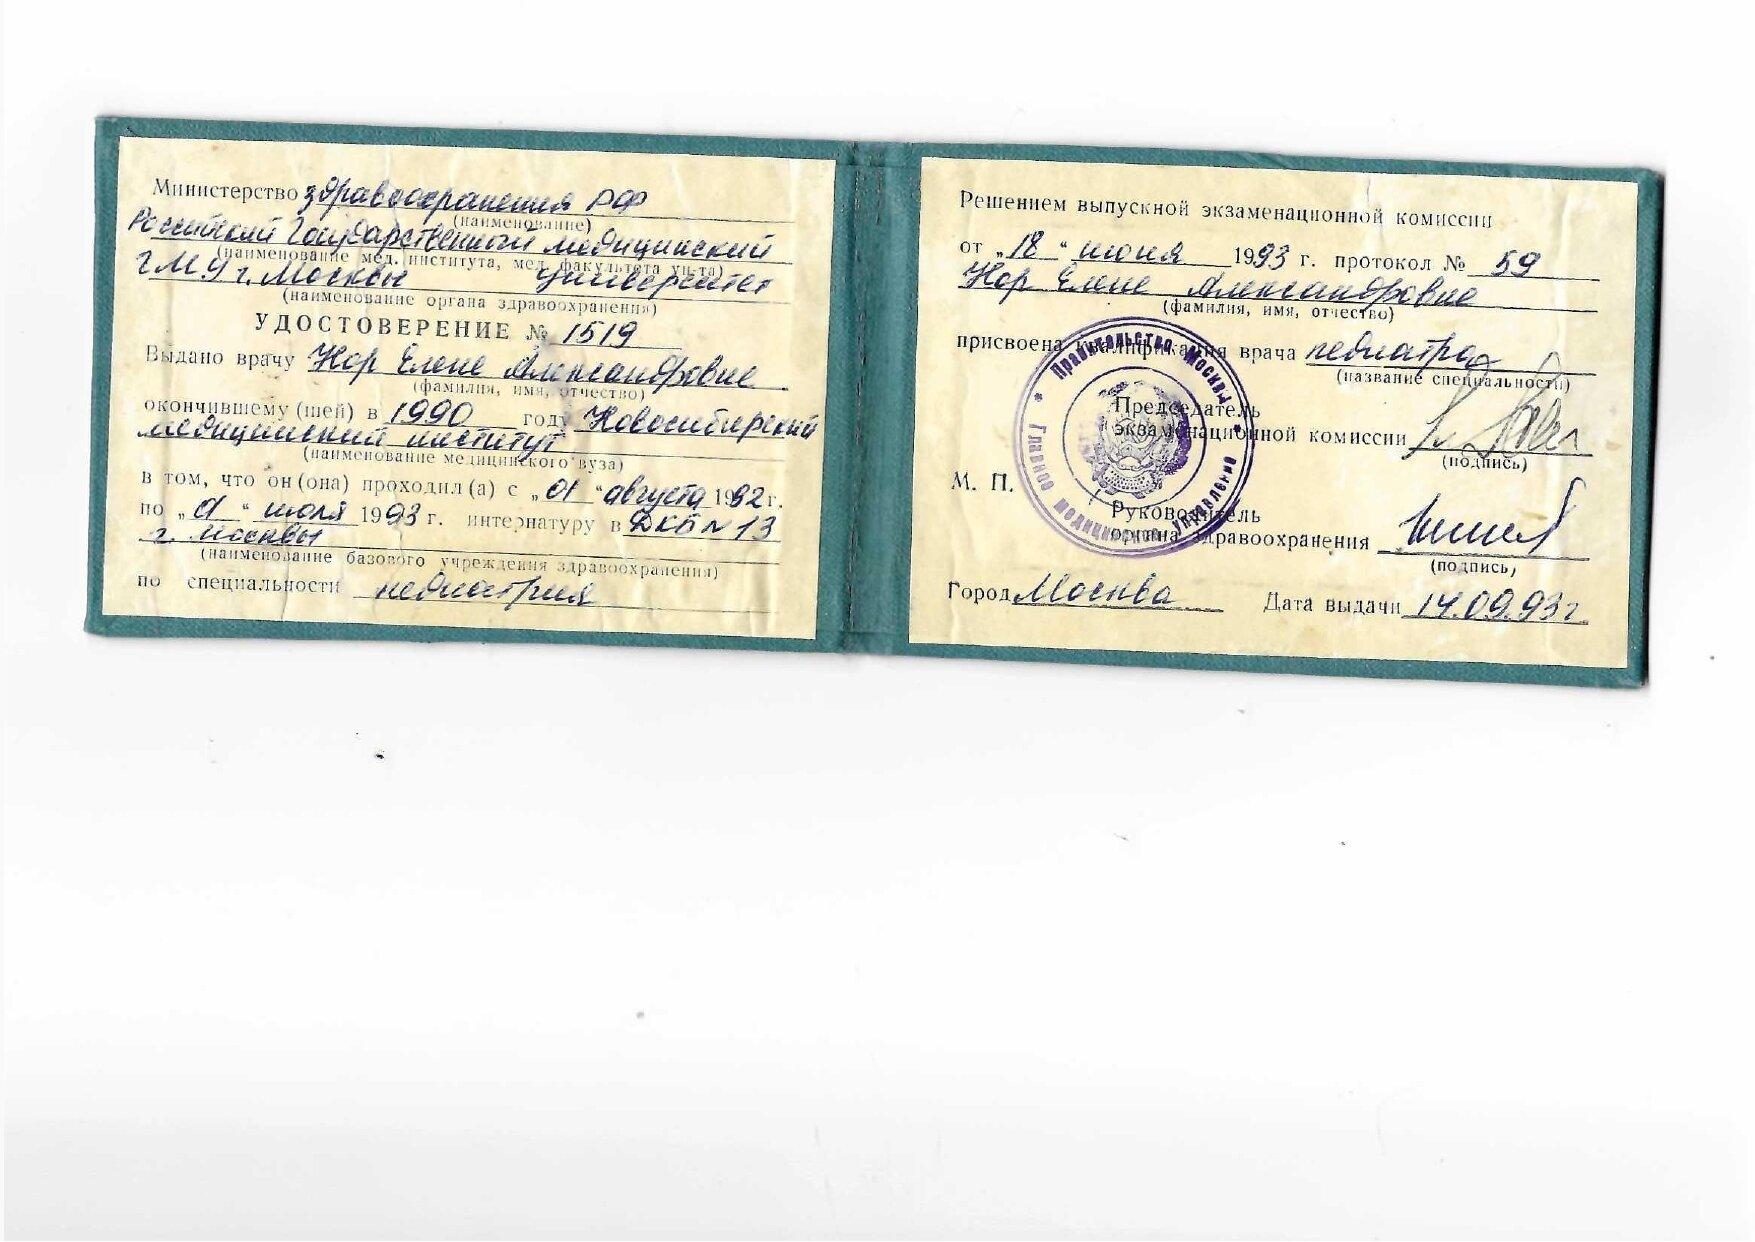 Министерство здравоохранения РФ
(наименование)
Российский Государственный медицинский
(наименование мед. института, мед. факультета ун-та)
ГМУ г. Москвы университет
(наименование органа здравоохранения)
УДОСТОВЕРЕНИЕ № 1519
Выдано врачу Нор Елене Александровне
(фамилия, имя, отчество)
окончившему (шей) в 1990 году Новосибирский
медицинский институт
(наименование медицинского вуза)
в том, что он (она) проходил (а) с „01“ августа 1992 г.
по „01“ июля 1993 г. интернатуру в ДКБ № 13
г. Москвы
(наименование базового учреждения здравоохранения)
по специальности педиатрия
Решением выпускной экзаменационной комиссии
от „18“ июня 1993 г. протокол № 59
Нор Елене Александровне
(фамилия, имя, отчество)
присвоена квалификация врача педиатра
(название специальности)
Председатель
экзаменационной комиссии
(подпись)
М. П.
Руководитель
органа здравоохранения
(подпись)
Город Москва Дата выдачи 14.09.93 г.
* Правительство Москвы *
Главное медицинское управление